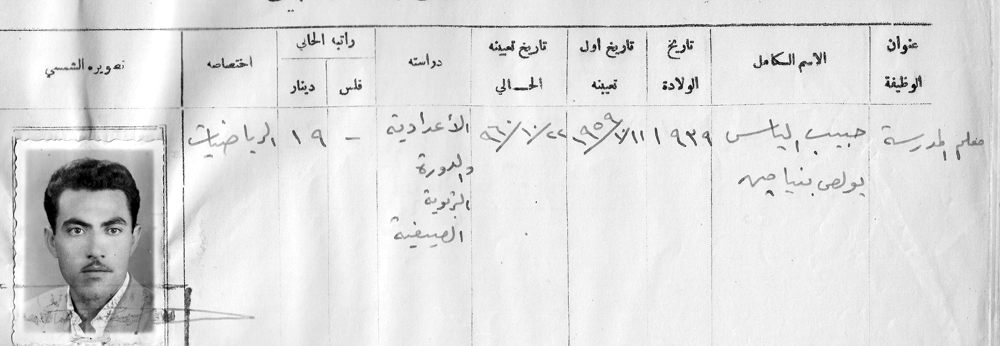 عنوان الوظيفة
الاسم الكامل
تاريخ الولادة
تاريخ اول تعيينه
تاريخ تعيينه الحالي
دراسته
راتبه الحالي
فلس
دينار
اختصاصه
تصويره الشمسي
معلم المدرسة
حبيب الياس
يولص بنيامين
١٩٣٩
١٩٥٩/١/١١
٩٦٠/١٠/٢٢
الأعدادية
والدورة
التربوية
الصيفية
-
١٩
الرياضيات